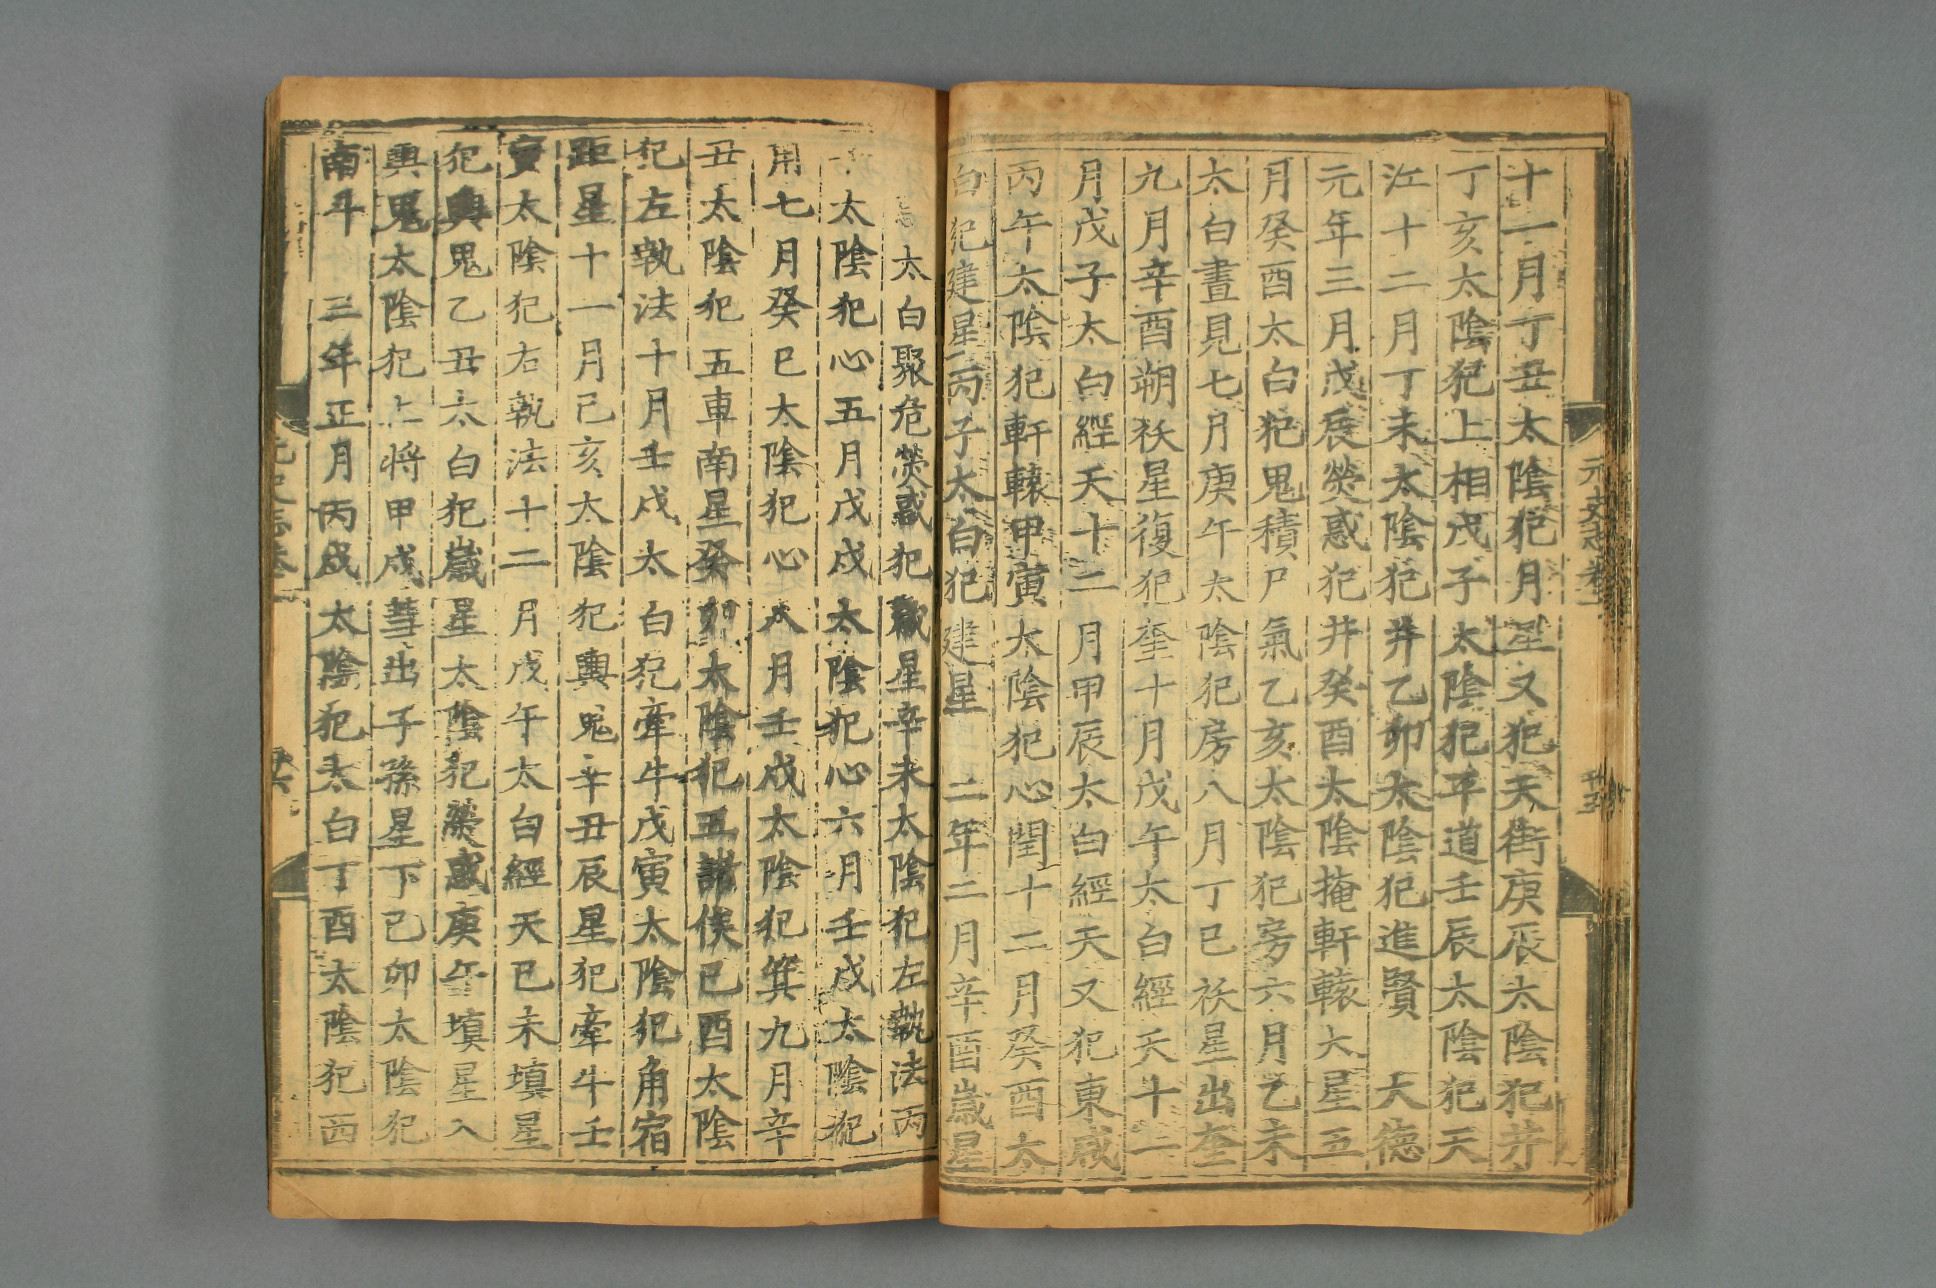 十一月丁丑太陰犯月星又犯天街庚辰太陰犯井
丁亥太陰犯上相戊子太陰犯平道壬辰太陰犯天
江十二月丁未太陰犯井乙卯太陰犯進賢 大德
元年三月戊辰熒惑犯井癸酉太陰掩軒轅大星五
月癸酉太白犯鬼積尸氣乙亥太陰犯房六月乙未
太白晝見七月庚午太陰犯房八月丁巳祅星出奎
九月辛酉朔祅星復犯奎十月戊午太白經天十一
月戊子太白經天十二月甲辰太白經天又犯東咸
丙午太陰犯軒轅甲寅太陰犯心閏十二月癸酉太
白犯建星丙子太白犯建星 二年二月辛酉歲星
太白聚危熒惑犯歲星辛未太陰犯左執法丙
太陰犯心五月戊戌太陰犯心六月壬戌太陰犯
用七月癸巳太陰犯心八月壬戌太陰犯箕九月辛
丑太陰犯五車南星癸卯太陰犯五諸侯己酉太陰
犯左執法十月壬戌太白犯牽牛戊寅太陰犯角宿
距星十一月己亥太陰犯輿鬼辛丑辰星犯牽牛壬
寅太陰犯右執法十二月戊午太白經天己未填星
犯輿鬼乙丑太白犯歲星太陰犯熒惑庚午填星入
輿鬼太陰犯上將甲戌彗出子孫星下己卯太陰犯
南斗 三年正月丙戌太陰犯太白丁酉太陰犯西
元史志卷